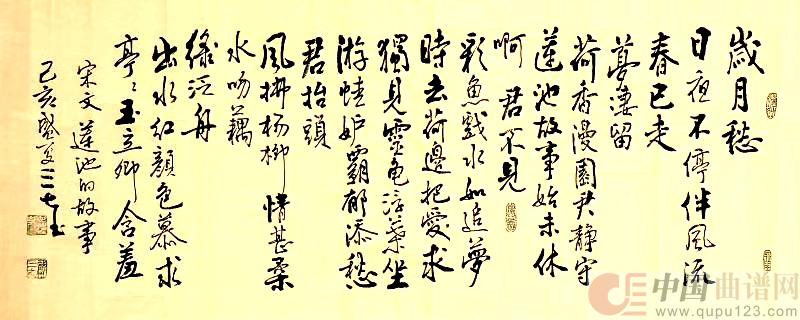 歲月愁
日夜不停伴風流
春已走
夢淒留
荷香漫園尹靜守
蓮池故事始未休
啊 君不見
彩魚戲水如追夢
時去荷邊把愛求
獨見靈龜浮葉坐
游蛙妒霸郁添愁
君抬頭
風拂杨柳情甚柔
水吻藕
綠泛舟
出水紅顏色慕求
亭亭玉立卿含羞
宋文 蓮池的故事
己亥盛夏
中国曲谱网
www.qupu123.com